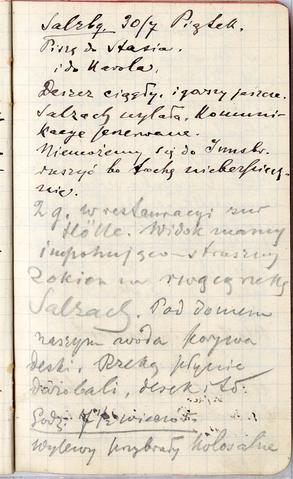 Salzbg. 30/7 Piątek.
Piszę do Stasia.
i do Karola.
Deszcz ciągły, i gorszy jeszcze.
Salzach wylała. Komuni-
kacye przerwane.
Niemożemy się do Innsbr.
ruszyć bo trochę niebezpiecz-
nie.
2 g. w restauracyi zur
Hölle. Widok mamy
imponująco-straszny
z okien na rwącą rzekę
Salzach. Pod domem
naszym woda porywa
deski. Rzeką płynie
drobiu, desek i t.d.
Godz. 7 1/2 wieczór.
wylewy przybrały kolosalne